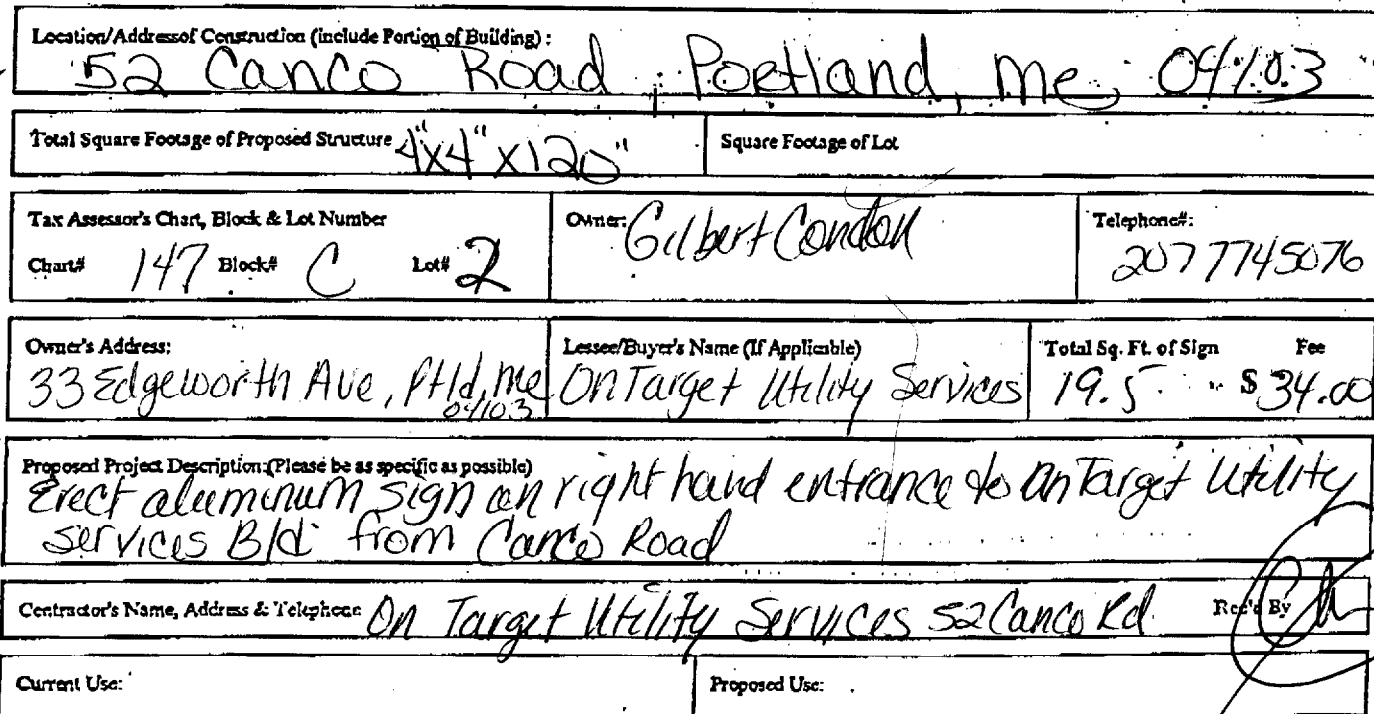 Location/Addressof Construction (include Portion of Building) :
52 Canco Road, Portland, Me 04103
Total Square Footage of Proposed Structure 4"x4"x120" Square Footage of Lot
Tax Assessor's Chart, Block & Lot Number Owner: Gilbert Condon Telephone#:
Chart# 147 Block# C Lot# 2 2077745076
Owner's Address: Lessee/Buyer's Name (If Applicable) Total Sq. Ft. of Sign Fee
33 Edgeworth Ave, Ptld, Me On Target Utility Services 19.5 $ 34.00
04103
Proposed Project Description:(Please be as specific as possible)
Erect aluminum sign on right hand entrance to On Target Utility
services Bld from Canco Road
Contractor's Name, Address & Telephone On Target Utility Services 52 Canco Rd. Rec'd By
Current Use: Proposed Use: